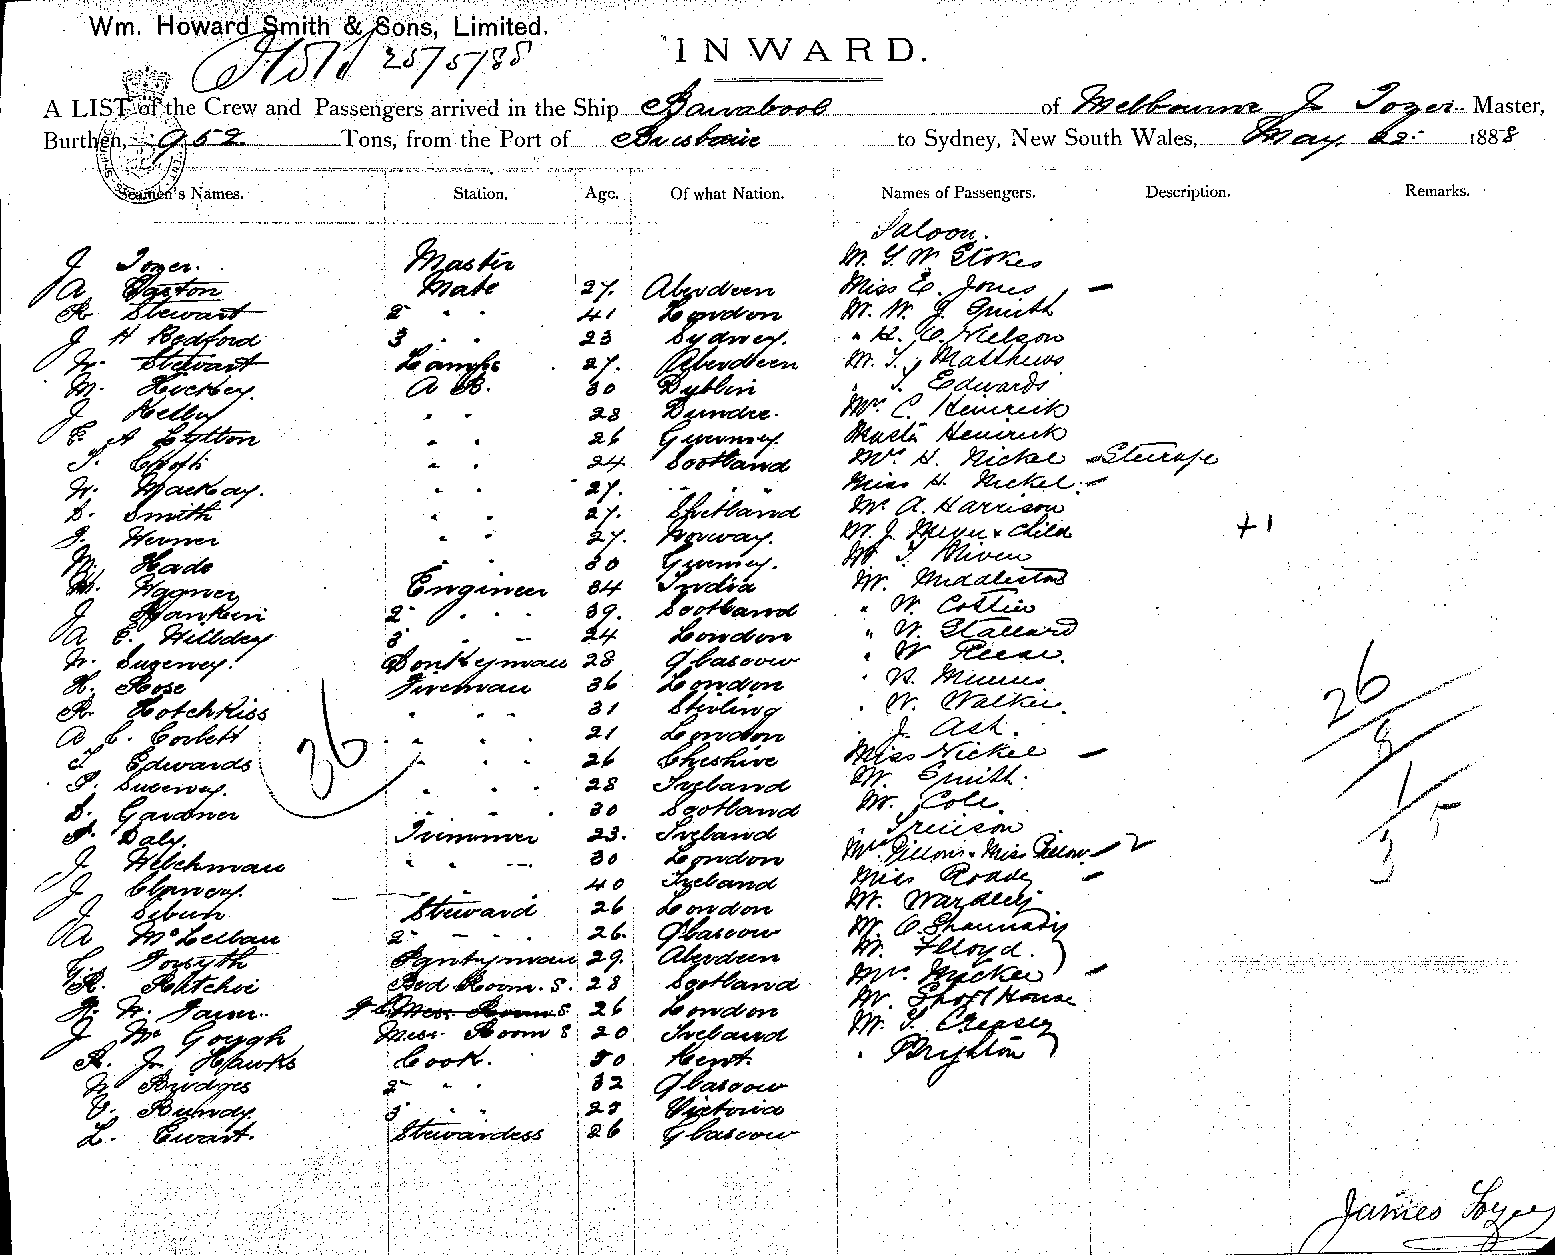 Wm. Howard Smith & Sons, Limited.
25/5/88
INWARD.
A LIST of the Crew and Passengers arrived in the Ship Barrabool of Melbourne J Tozer Master,
Burthen, 952 Tons, from the Port of Brisbane to Sydney, New South Wales, May 22 1888
Seamen's Names. Station. Age. Of what Nation. Names of Passengers. Description. Remarks.
Saloon.
J Tozer. Master M. G. W Stokes
A Mate 27. Aberdeen Miss E. Jones –
R Stewart 2 " " 41 London M. W. J. Smith
J H Bedford 3 " " 23 Sydney. " H. C. Nielson
W. Stewart Lamps 27. Aberdeen M. T. Matthews
M. Hickey. A B. 30 Dublin " T. Edwards
J Kelby " " 28 Dundee. Mrs C. Heinrich
E A Lytton " " 26 Guernsey Master Heinrich
T. " " 24 Scotland Mrs H. Nickel Steerage
W. Mackay. " " 27. " " " Miss H. Nickel –
D. Smith " " 27. Shetland Mr A. Harrison
" " 27. Norway. M. J. Meyer & Child +1
W. Hado " " 30 Guernsey. M T Niven
W. Wagner Engineer 34 India M. Middleton
J Rankin 2 " " 39. Scotland " W. Costin
A E. Hilliday 3 " " 24 London " W. Stallard
W. Donkeyman 28 Glasgow " W Reese.
H. Rose Fireman 36 London
R. Hotchkiss " " " 31 Stirling " W. Walker.
A C. Corlett " " " 21 London J. Ash.
T Edwards " " " 26 Cheshire Miss Nickel –
" " " 28 Ireland M. Smith.
D. Gardner " " " 30 Scotland M. Cole
Daly. Trimmer 23. Ireland
J. Welchman " " " 30 London 2
J Clancy. " " 40 Ireland Miss Roddy –
J Steward 26 London M. Wardley
A McLellan 2 " " 26. Glasgow M. O Shannady
Forsyth Pantryman 29. Aberdeen M. Floyd.
R. Ritchie Bed Room. S. 28 Scotland Mrs –
W. Mess Room S 26 London M. Short House
J Mc Gough Mess Room S 20 Ireland M. T. Creasey
R. J. Hawks Cook. 50 Kent. " Brighton
W Bridges 2 " " 32 Glasgow
V. Bundy. 3 " " 25 Victoria
L. Ewart. Stewardess 26 Glasgow
36
26
8
1
5
3
James Tozer